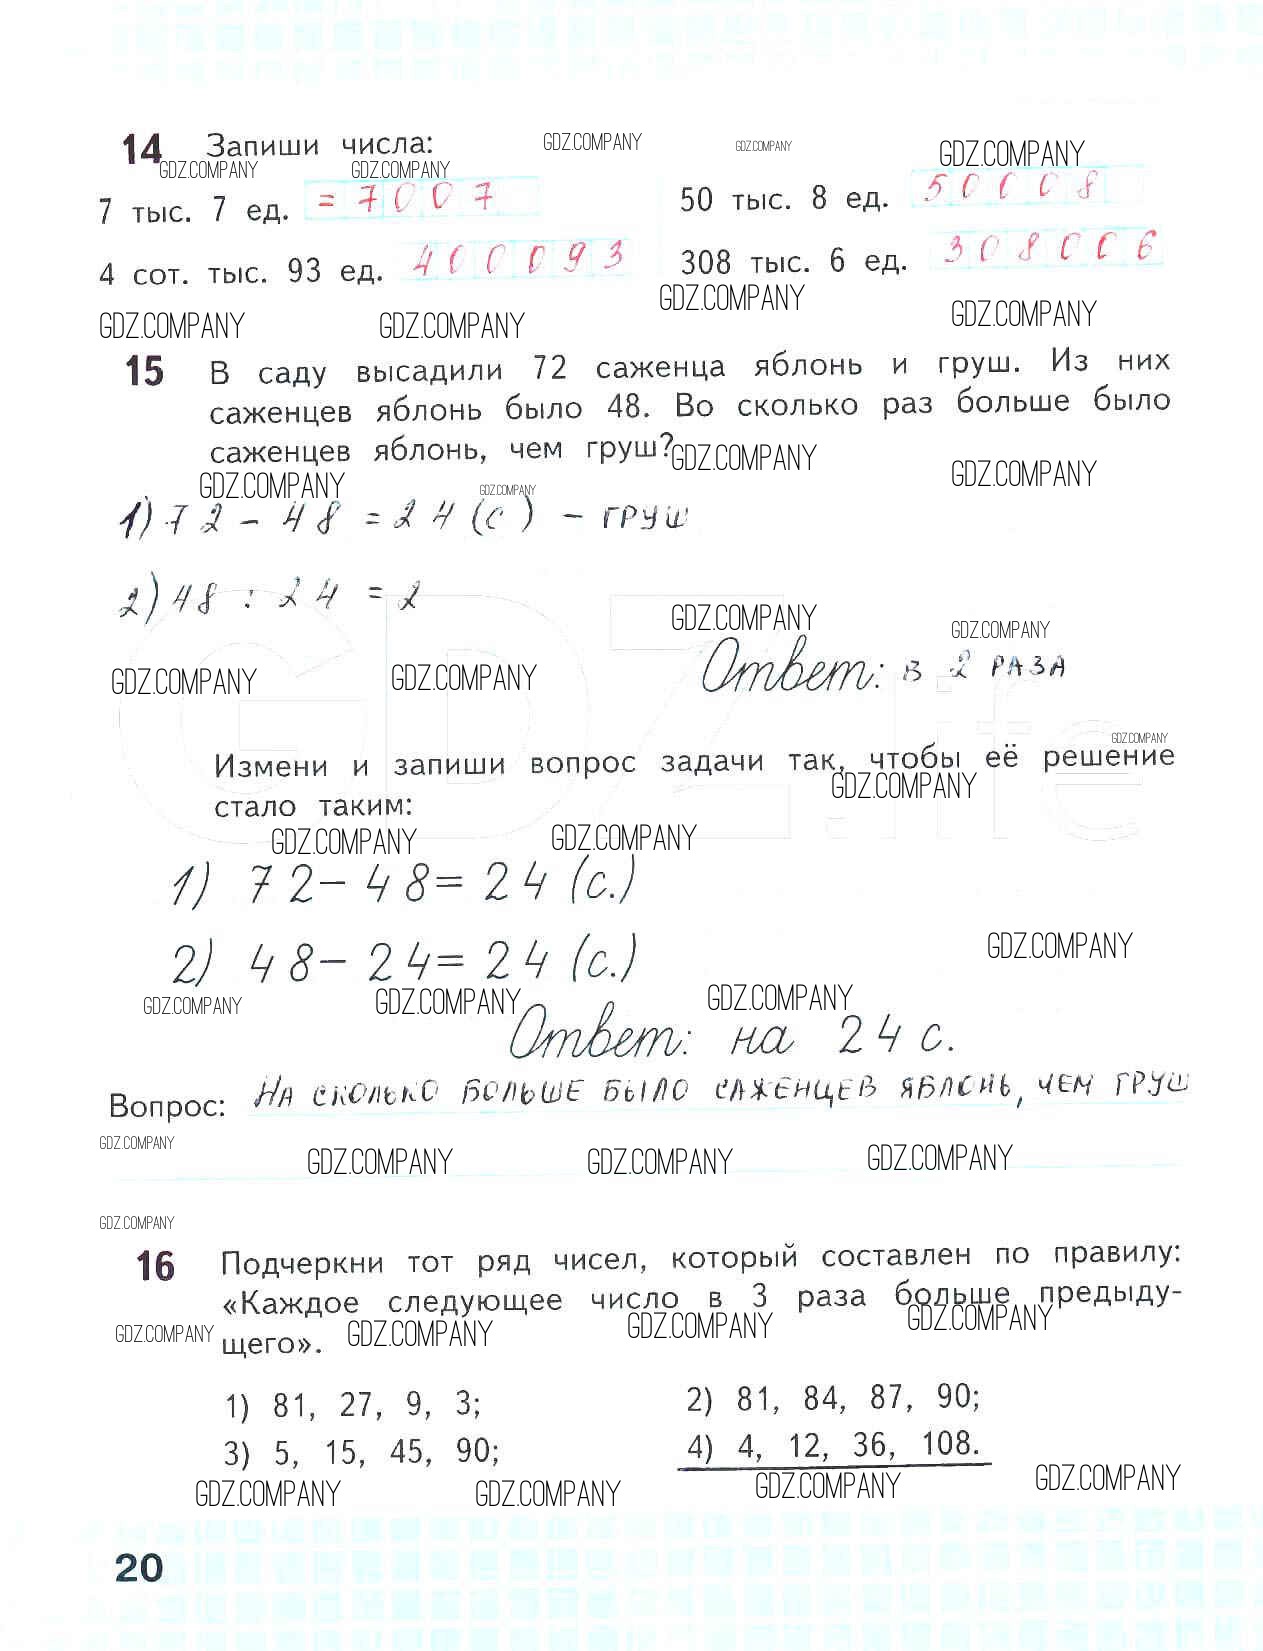 14 Запиши числа: GDZ.COMPANY GDZ.COMPANY GDZ.COMPANY
GDZ.COMPANY GDZ.COMPANY
7 тыс. 7 ед. = 7007 50 тыс. 8 ед. 50008
4 сот. тыс. 93 ед. 400093 308 тыс. 6 ед. 308006
GDZ.COMPANY GDZ.COMPANY GDZ.COMPANY GDZ.COMPANY
15 В саду высадили 72 саженца яблонь и груш. Из них
саженцев яблонь было 48. Во сколько раз больше было
саженцев яблонь, чем груш? GDZ.COMPANY GDZ.COMPANY
GDZ.COMPANY GDZ.COMPANY
1) 72 - 48 = 24 (с) - груш
2) 48 : 24 = 2
GDZ.COMPANY GDZ.COMPANY
Ответ: в 2 раза
GDZ.COMPANY GDZ.COMPANY
GDZ.life
GDZ.COMPANY
Измени и запиши вопрос задачи так, чтобы её решение
стало таким: GDZ.COMPANY
GDZ.COMPANY GDZ.COMPANY
1) 72 - 48 = 24 (с.)
2) 48 - 24 = 24 (с.) GDZ.COMPANY
GDZ.COMPANY GDZ.COMPANY GDZ.COMPANY
Ответ: на 24 с.
Вопрос: На сколько больше было саженцев яблонь, чем груш
GDZ.COMPANY GDZ.COMPANY GDZ.COMPANY GDZ.COMPANY
GDZ.COMPANY
16 Подчеркни тот ряд чисел, который составлен по правилу:
«Каждое следующее число в 3 раза больше предыду-
щего».
GDZ.COMPANY GDZ.COMPANY GDZ.COMPANY GDZ.COMPANY
1) 81, 27, 9, 3; 2) 81, 84, 87, 90;
3) 5, 15, 45, 90; 4) 4, 12, 36, 108.
GDZ.COMPANY GDZ.COMPANY GDZ.COMPANY GDZ.COMPANY
20